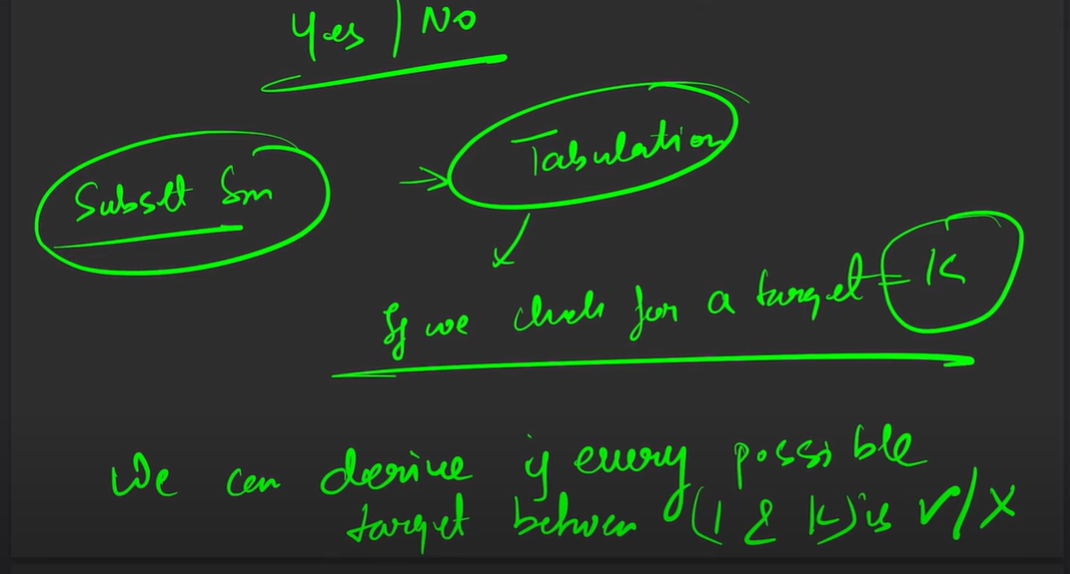 Yes | No
Subset Sm
→ Tabulation
If we check for a target = K
We can derive if every possible
target between (1 & K) is ✓/X